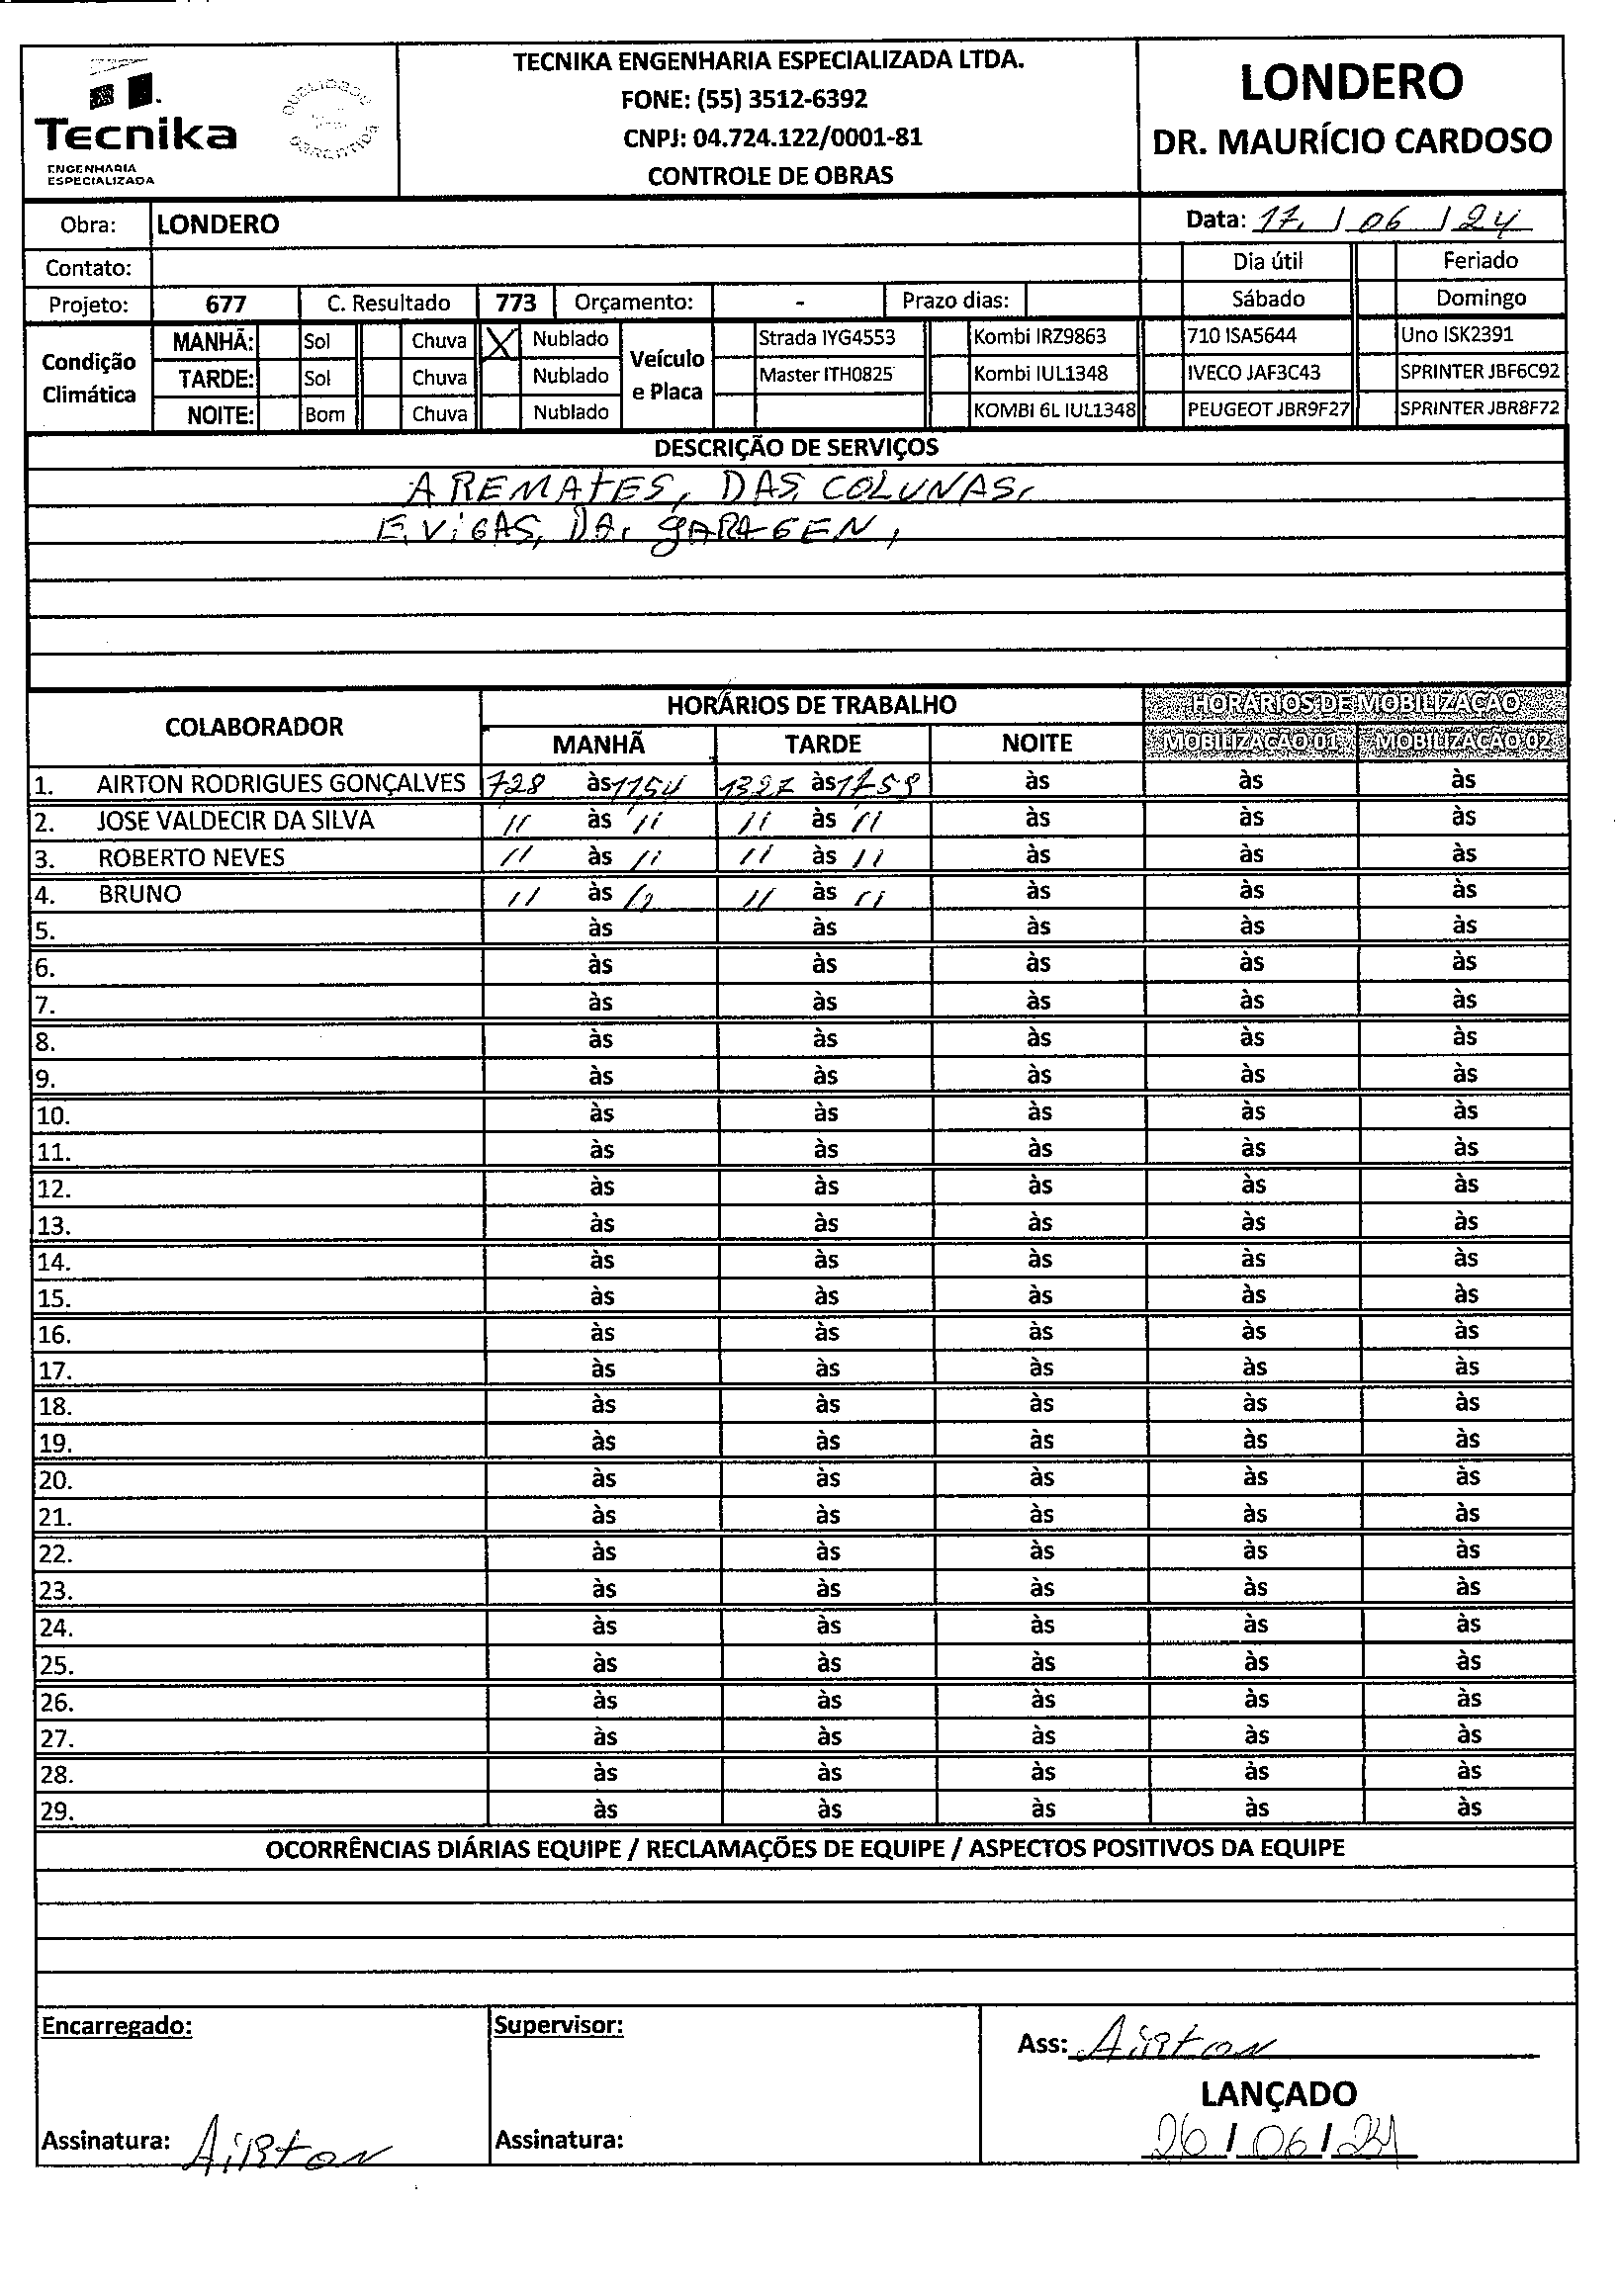 Tecnika
ENGENHARIA
ESPECIALIZADA
TECNIKA ENGENHARIA ESPECIALIZADA LTDA.
FONE: (55) 3512-6392
CNPJ: 04.724.122/0001-81
CONTROLE DE OBRAS
LONDERO
DR. MAURÍCIO CARDOSO
Obra: LONDERO Data: 17 / 06 / 24
Contato: Dia útil Feriado
Projeto: 677 C. Resultado 773 Orçamento: - Prazo dias: Sábado Domingo
Condição Climática
MANHÃ: Sol Chuva X Nublado
TARDE: Sol Chuva Nublado
NOITE: Bom Chuva Nublado
Veículo e Placa
Strada IYG4553 Kombi IRZ9863 710 ISA5644 Uno ISK2391
Master ITH0825 Kombi IUL1348 IVECO JAF3C43 SPRINTER JBF6C92
KOMBI 6L IUL1348 PEUGEOT JBR9F27 SPRINTER JBR8F72
DESCRIÇÃO DE SERVIÇOS
AREMATES, DAS COLUNAS,
E, ViGAS, DA, gARAGEN,
COLABORADOR HORÁRIOS DE TRABALHO HORÁRIOS DE MOBILIZAÇÃO
MANHÃ TARDE NOITE MOBILIZAÇÃO 01 MOBILIZAÇÃO 02
1. AIRTON RODRIGUES GONÇALVES 728 às 1154 1327 às 1759 às às às
2. JOSE VALDECIR DA SILVA 11 às 11 11 às 11 às às às
3. ROBERTO NEVES 11 às 11 11 às 11 às às às
4. BRUNO 11 às 11 11 às 11 às às às
5. às às às às às
6. às às às às às
7. às às às às às
8. às às às às às
9. às às às às às
10. às às às às às
11. às às às às às
12. às às às às às
13. às às às às às
14. às às às às às
15. às às às às às
16. às às às às às
17. às às às às às
18. às às às às às
19. às às às às às
20. às às às às às
21. às às às às às
22. às às às às às
23. às às às às às
24. às às às às às
25. às às às às às
26. às às às às às
27. às às às às às
28. às às às às às
29. às às às às às
OCORRÊNCIAS DIÁRIAS EQUIPE / RECLAMAÇÕES DE EQUIPE / ASPECTOS POSITIVOS DA EQUIPE
Encarregado:
Assinatura: Airton
Supervisor:
Assinatura:
Ass: Airton
LANÇADO
26 / 06 / 24